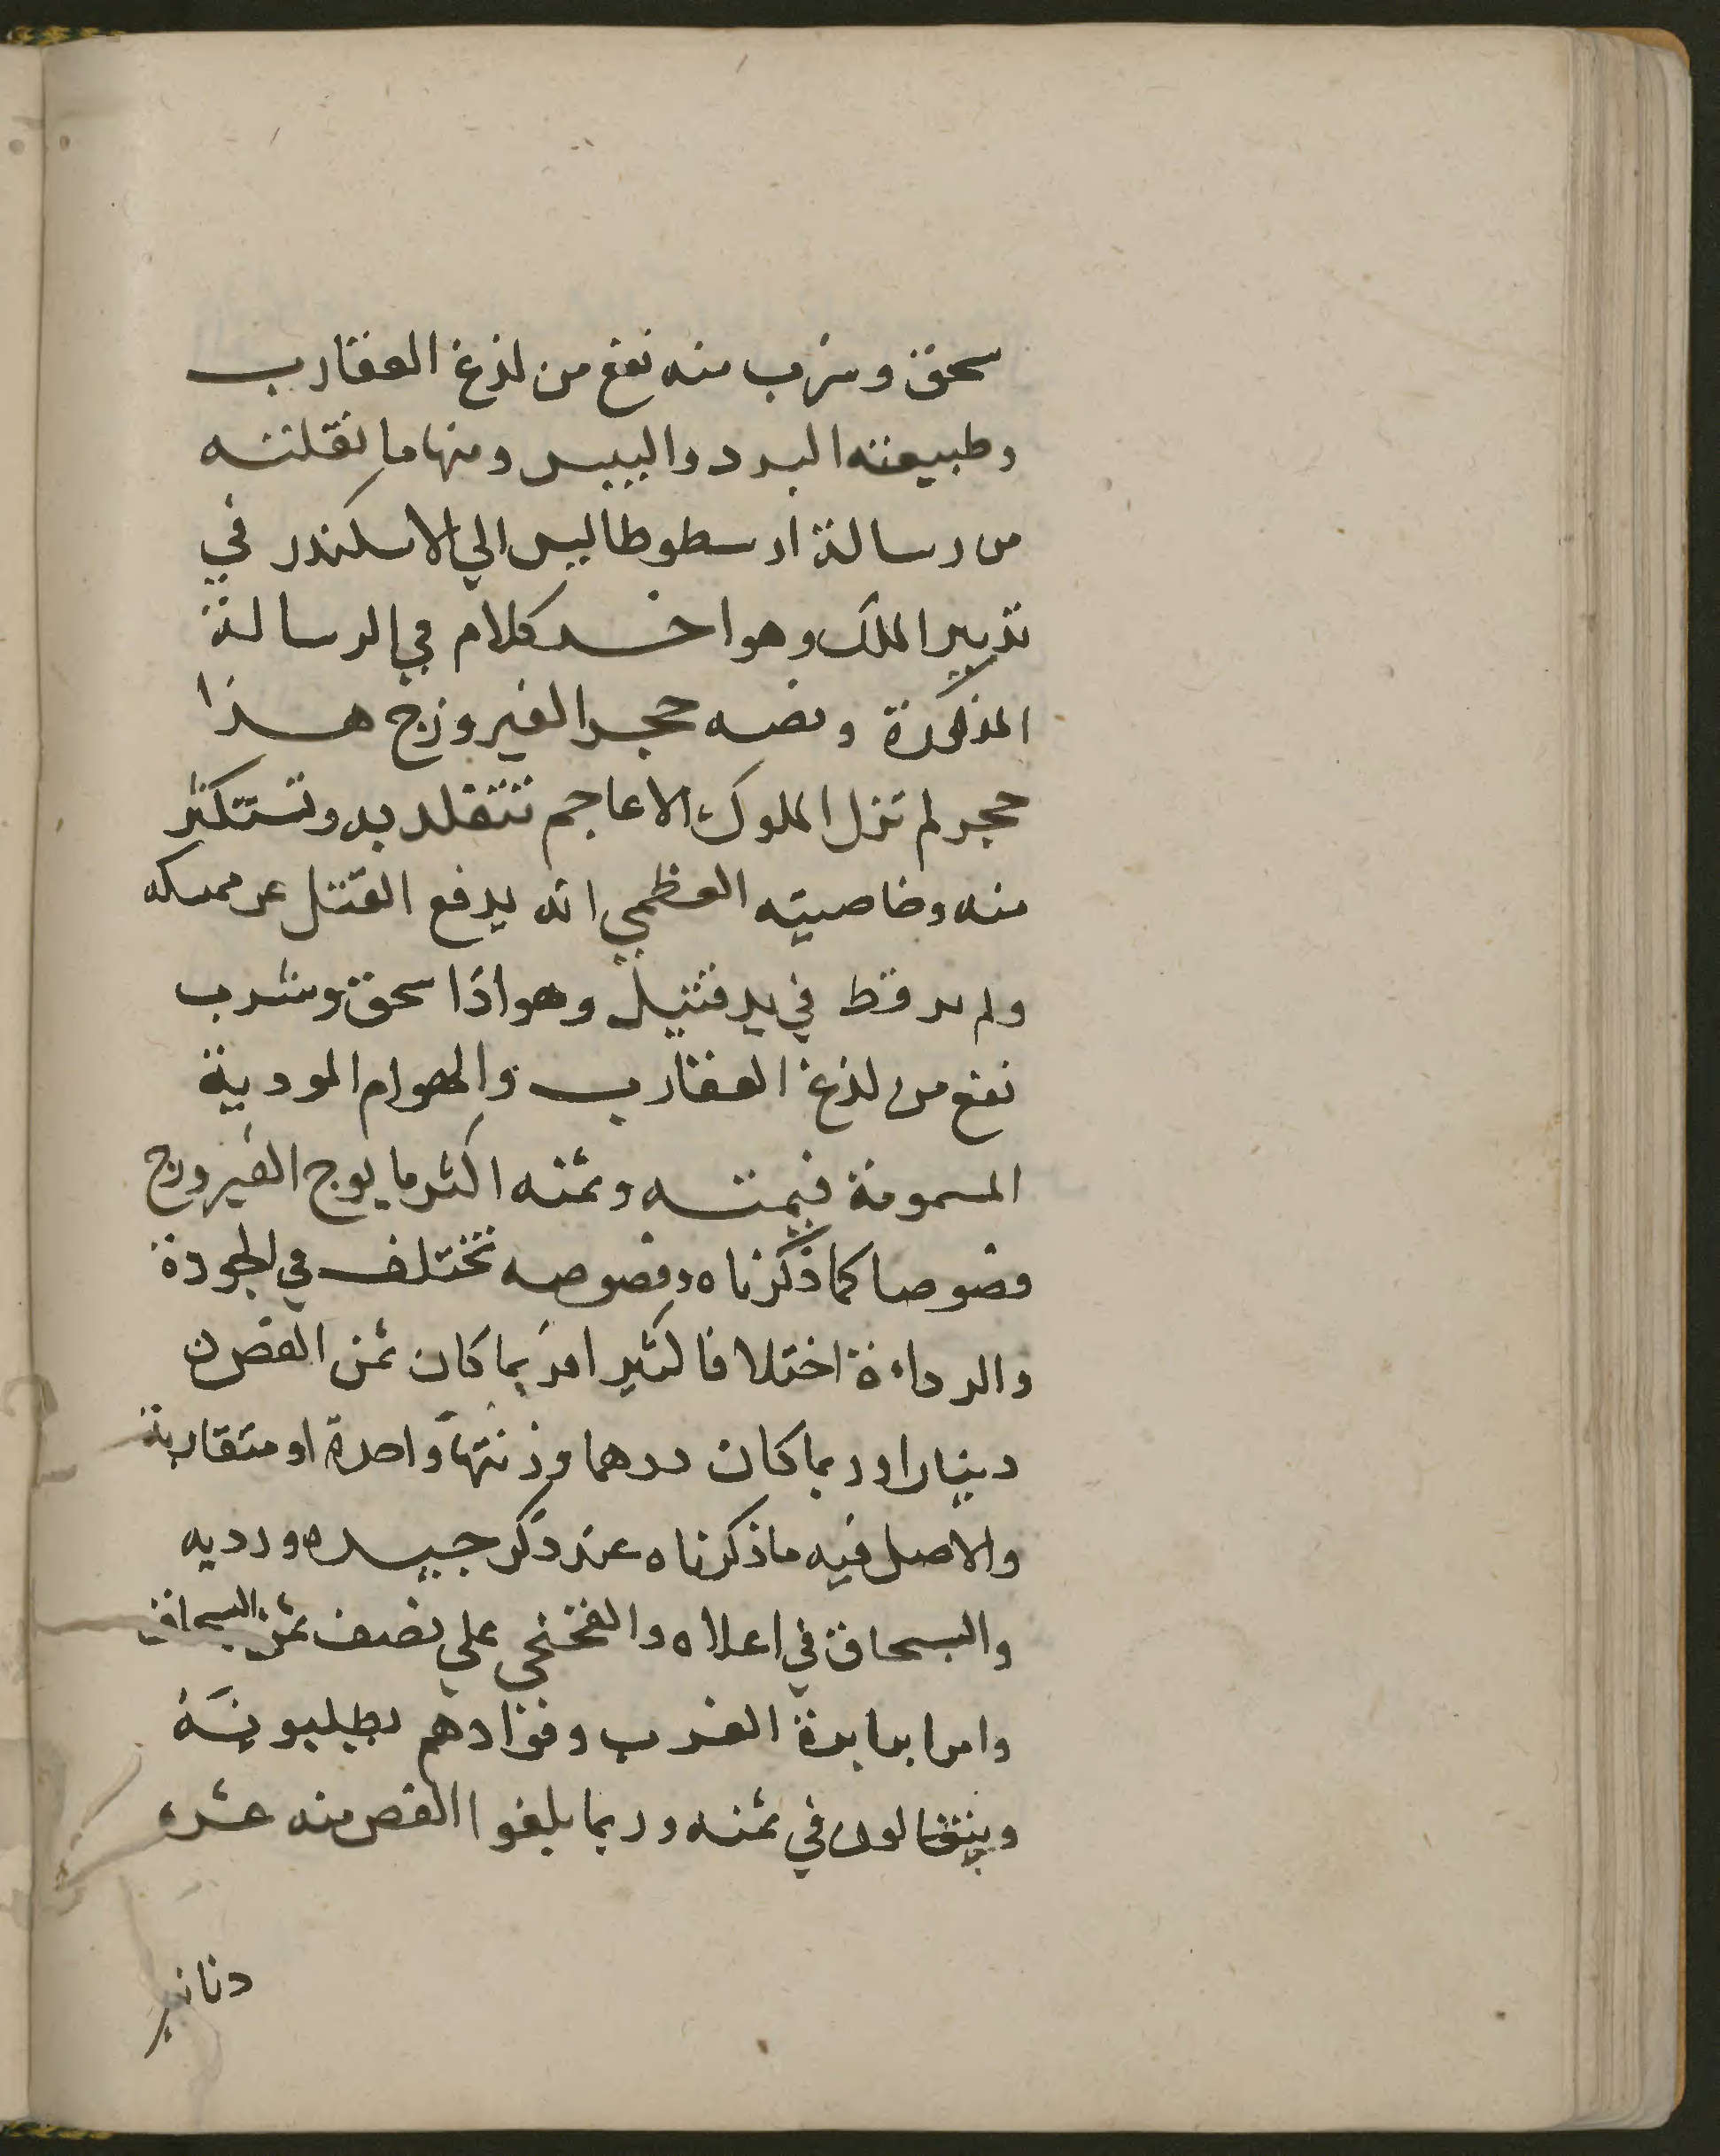 سحق وشرب منه نفع من لذغ العقارب
وطبيعته البرد واليبس ومنها ما نقلته
من رسالة ارسطوطاليس الي الاسكندر في
تدبير الملك وهو اخر كلام في الرسالة
المذكورة ونصه حجر الفيروزج هذا
حجر لم تزل الملوك الاعاجم تتقلد به وتستكثر
منه وخاصيته العظمي انه يدفع القتل عن ممسكه
ولم ير قط في يد قتيل وهو اذا سحق وشرب
نفع من لذغ العقارب والهوام المودية
المسمومة قيمته وثمنه اكثر ما يوج الفيروزج
فصوصا كما ذكرناه وفصوصه تختلف في الجودة
والرداءة اختلافا كثيرا فربما كان ثمن الفص ن
دينارا وربما كان درهما وزنتها واحدة او متقاربة
والاصل فيه ما ذكرناه عند ذكر جيده ورديه
والبسحاق في اعلاه والفخنجي علي نصف ثمن البسحاق
وامرا بدابدة الغرب وقوادهم يطلبونه
ويتغالون في ثمنه وربما بلغوا الفص منه عشره
دنانير